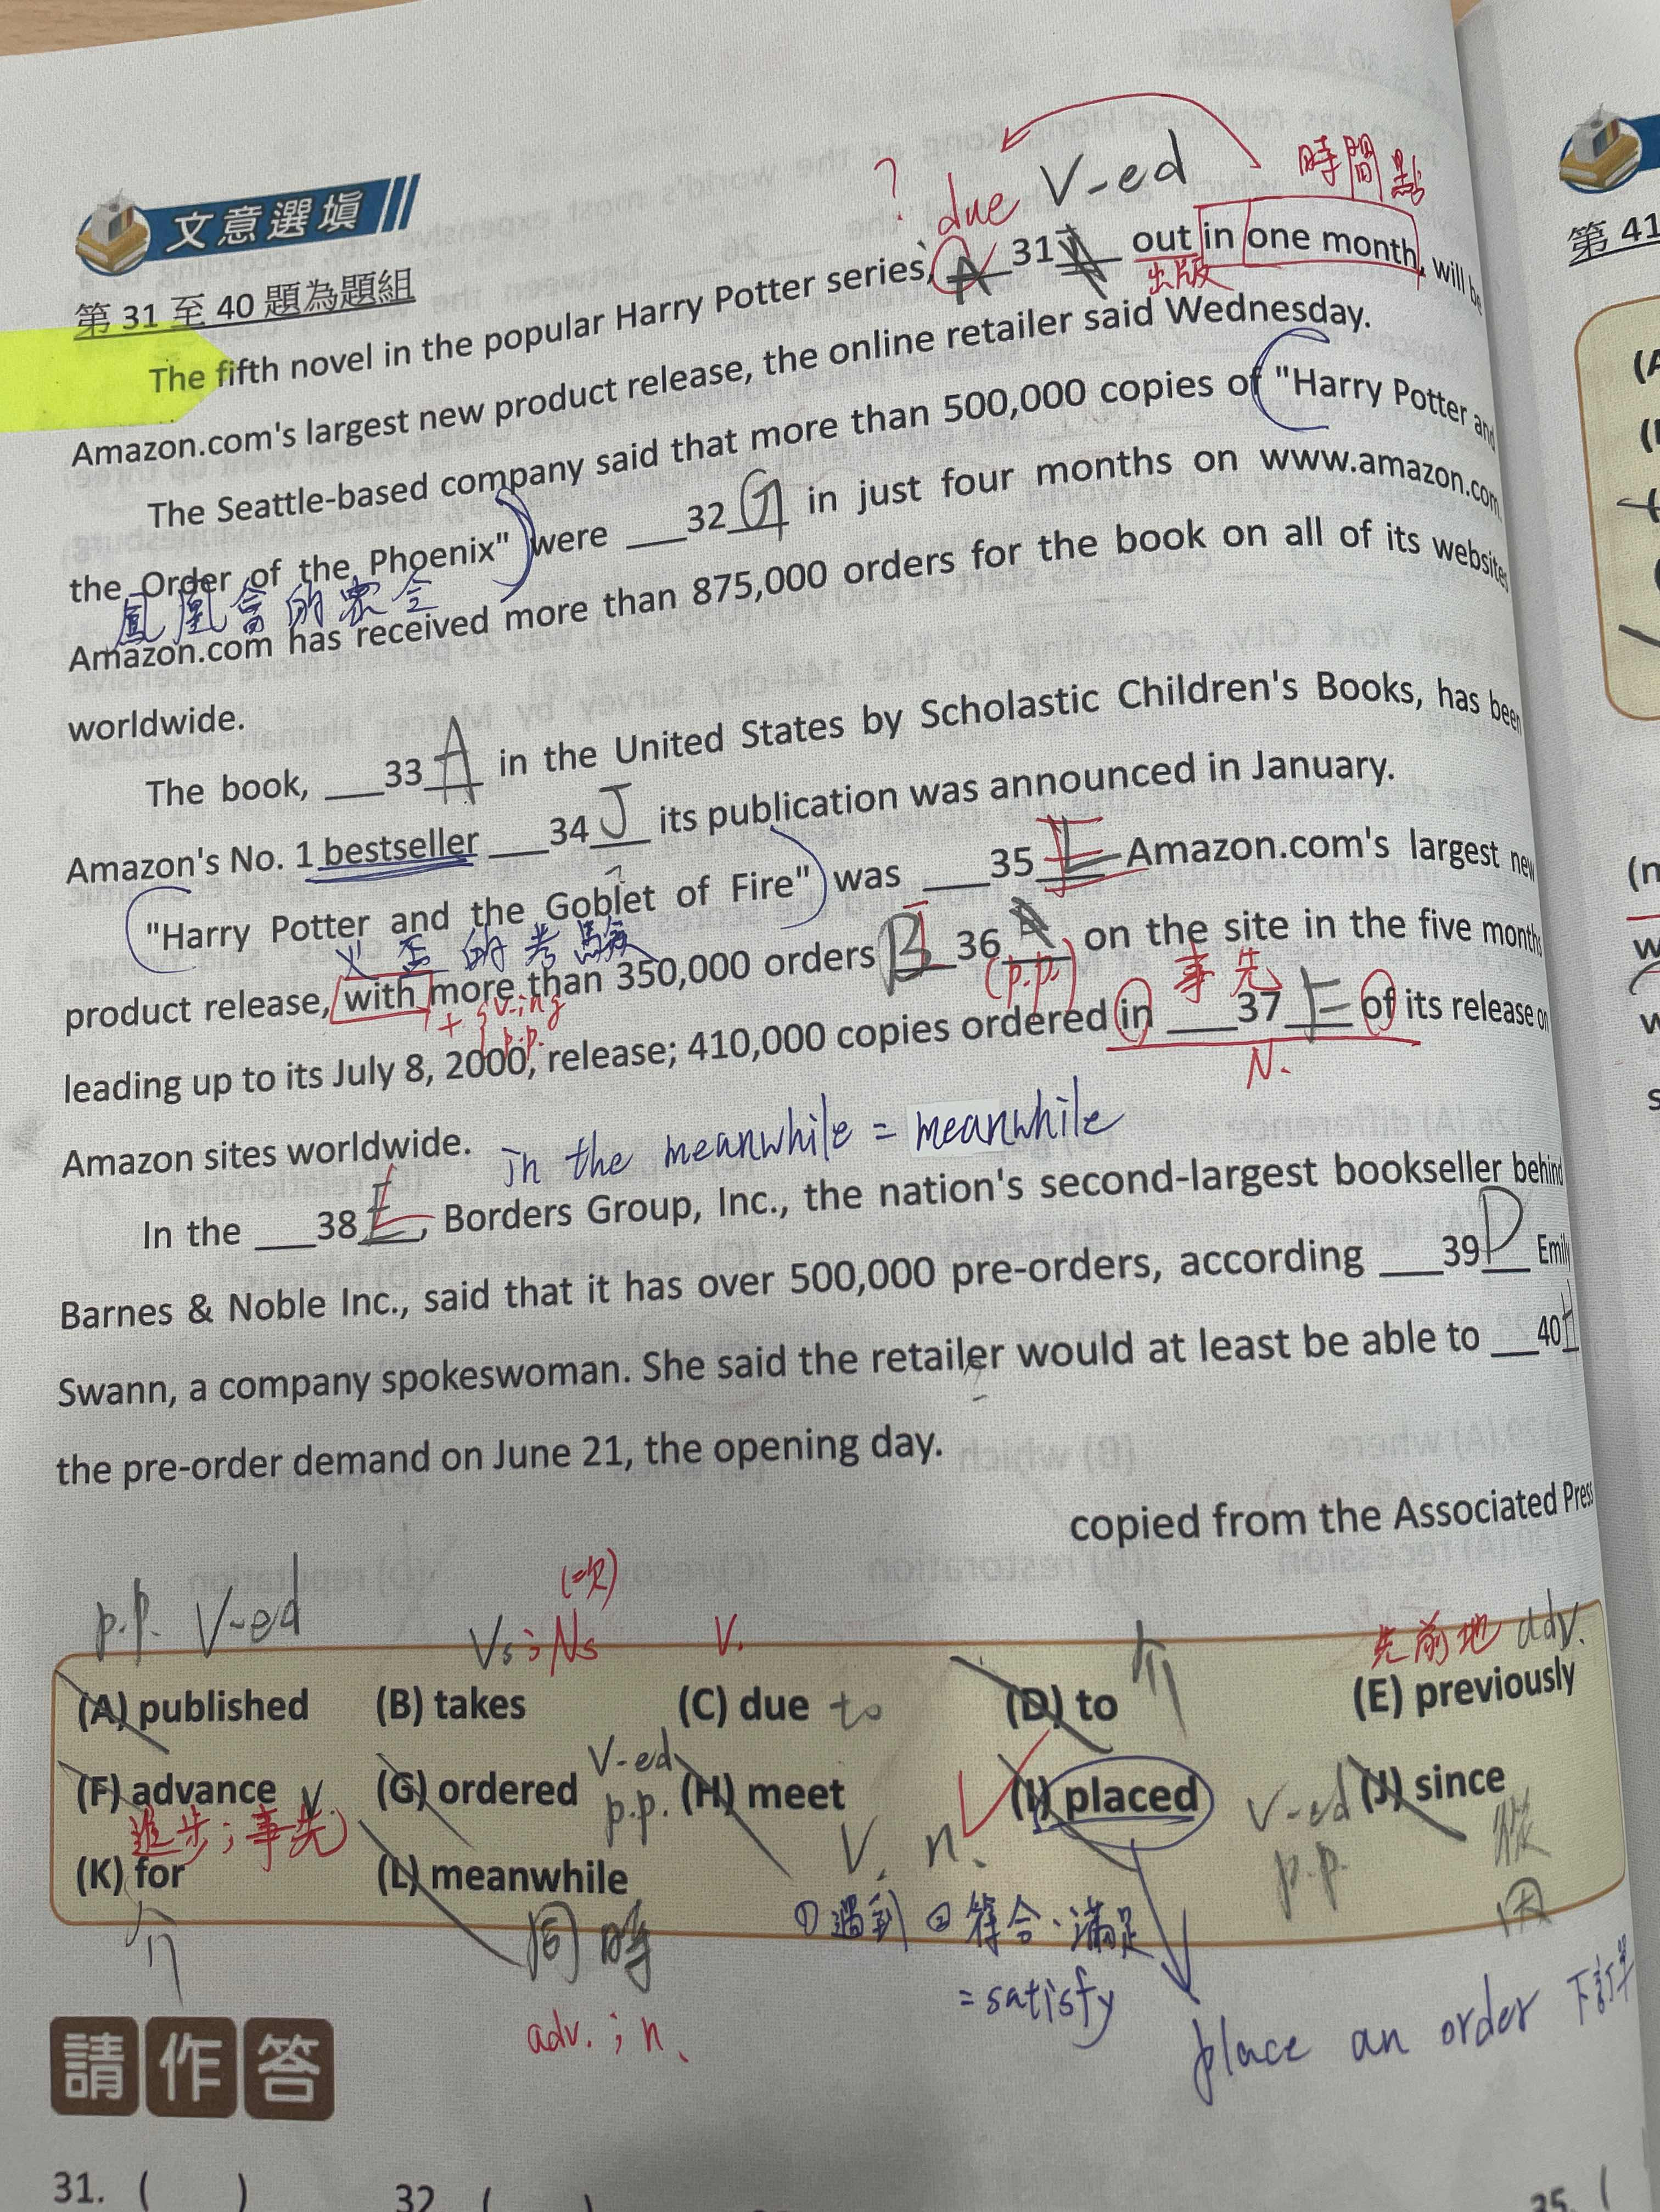 ? due V-ed 時間點
文意選填
第 31 至 40 題為題組
The fifth novel in the popular Harry Potter series, ___31___ out in one month, will be
出版
Amazon.com's largest new product release, the online retailer said Wednesday.
The Seattle-based company said that more than 500,000 copies of "Harry Potter and
the Order of the Phoenix" were ___32 G in just four months on www.amazon.com.
鳳凰會的密令
Amazon.com has received more than 875,000 orders for the book on all of its websites
worldwide.
The book, ___33 A in the United States by Scholastic Children's Books, has been
Amazon's No. 1 bestseller ___34 J its publication was announced in January.
"Harry Potter and the Goblet of Fire" was ___35 E Amazon.com's largest new
火盃的考驗
product release, with more than 350,000 orders ___36___ on the site in the five months
+ v-ing p.p. (p.p.) 事先
leading up to its July 8, 2000, release; 410,000 copies ordered in ___37 F of its release on
N.
Amazon sites worldwide. in the meanwhile = meanwhile
In the ___38 L, Borders Group, Inc., the nation's second-largest bookseller behind
Barnes & Noble Inc., said that it has over 500,000 pre-orders, according ___39 D Emily
Swann, a company spokeswoman. She said the retailer would at least be able to ___40 H
the pre-order demand on June 21, the opening day.
copied from the Associated Press
p.p. V-ed Vs; Ns V. 介 先前地 adv.
(A) published (B) takes (C) due to (D) to (E) previously
(F) advance V. (G) ordered V-ed p.p. (H) meet (I) placed V-ed p.p. (J) since
進步;事先 V. n.
(K) for (L) meanwhile
介 同時 ①遇到 ②符合、滿足
= satisfy
adv. ; n. place an order 下訂單
請作答
31. ( ) 32 ( ) 35. (
第 41